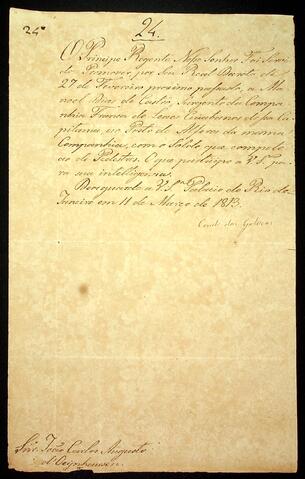 24ª
24.
O Principe Regente Nosso Senhor Foi Servi-
do Promover por Seu Real Decreto de
27 de Fevereiro proximo passado, a Ma-
noel de Castro, Sargento da Compa-
nhia Franca de Leaes Cuiabanos dessa Ca-
pitania, no Posto de Alferes da mesma
Companhia, com o Soldo, que compete
ao de Pedestres. O que participo a V. Sª. pa-
ra sua intelligencia.
Deos guarde a V. Sª. Palacio do Rio de
Janeiro em 11 de Março de 1813.
Conde das Galveas
Snr. João Carlos Augusto
d'Oeynhausen.